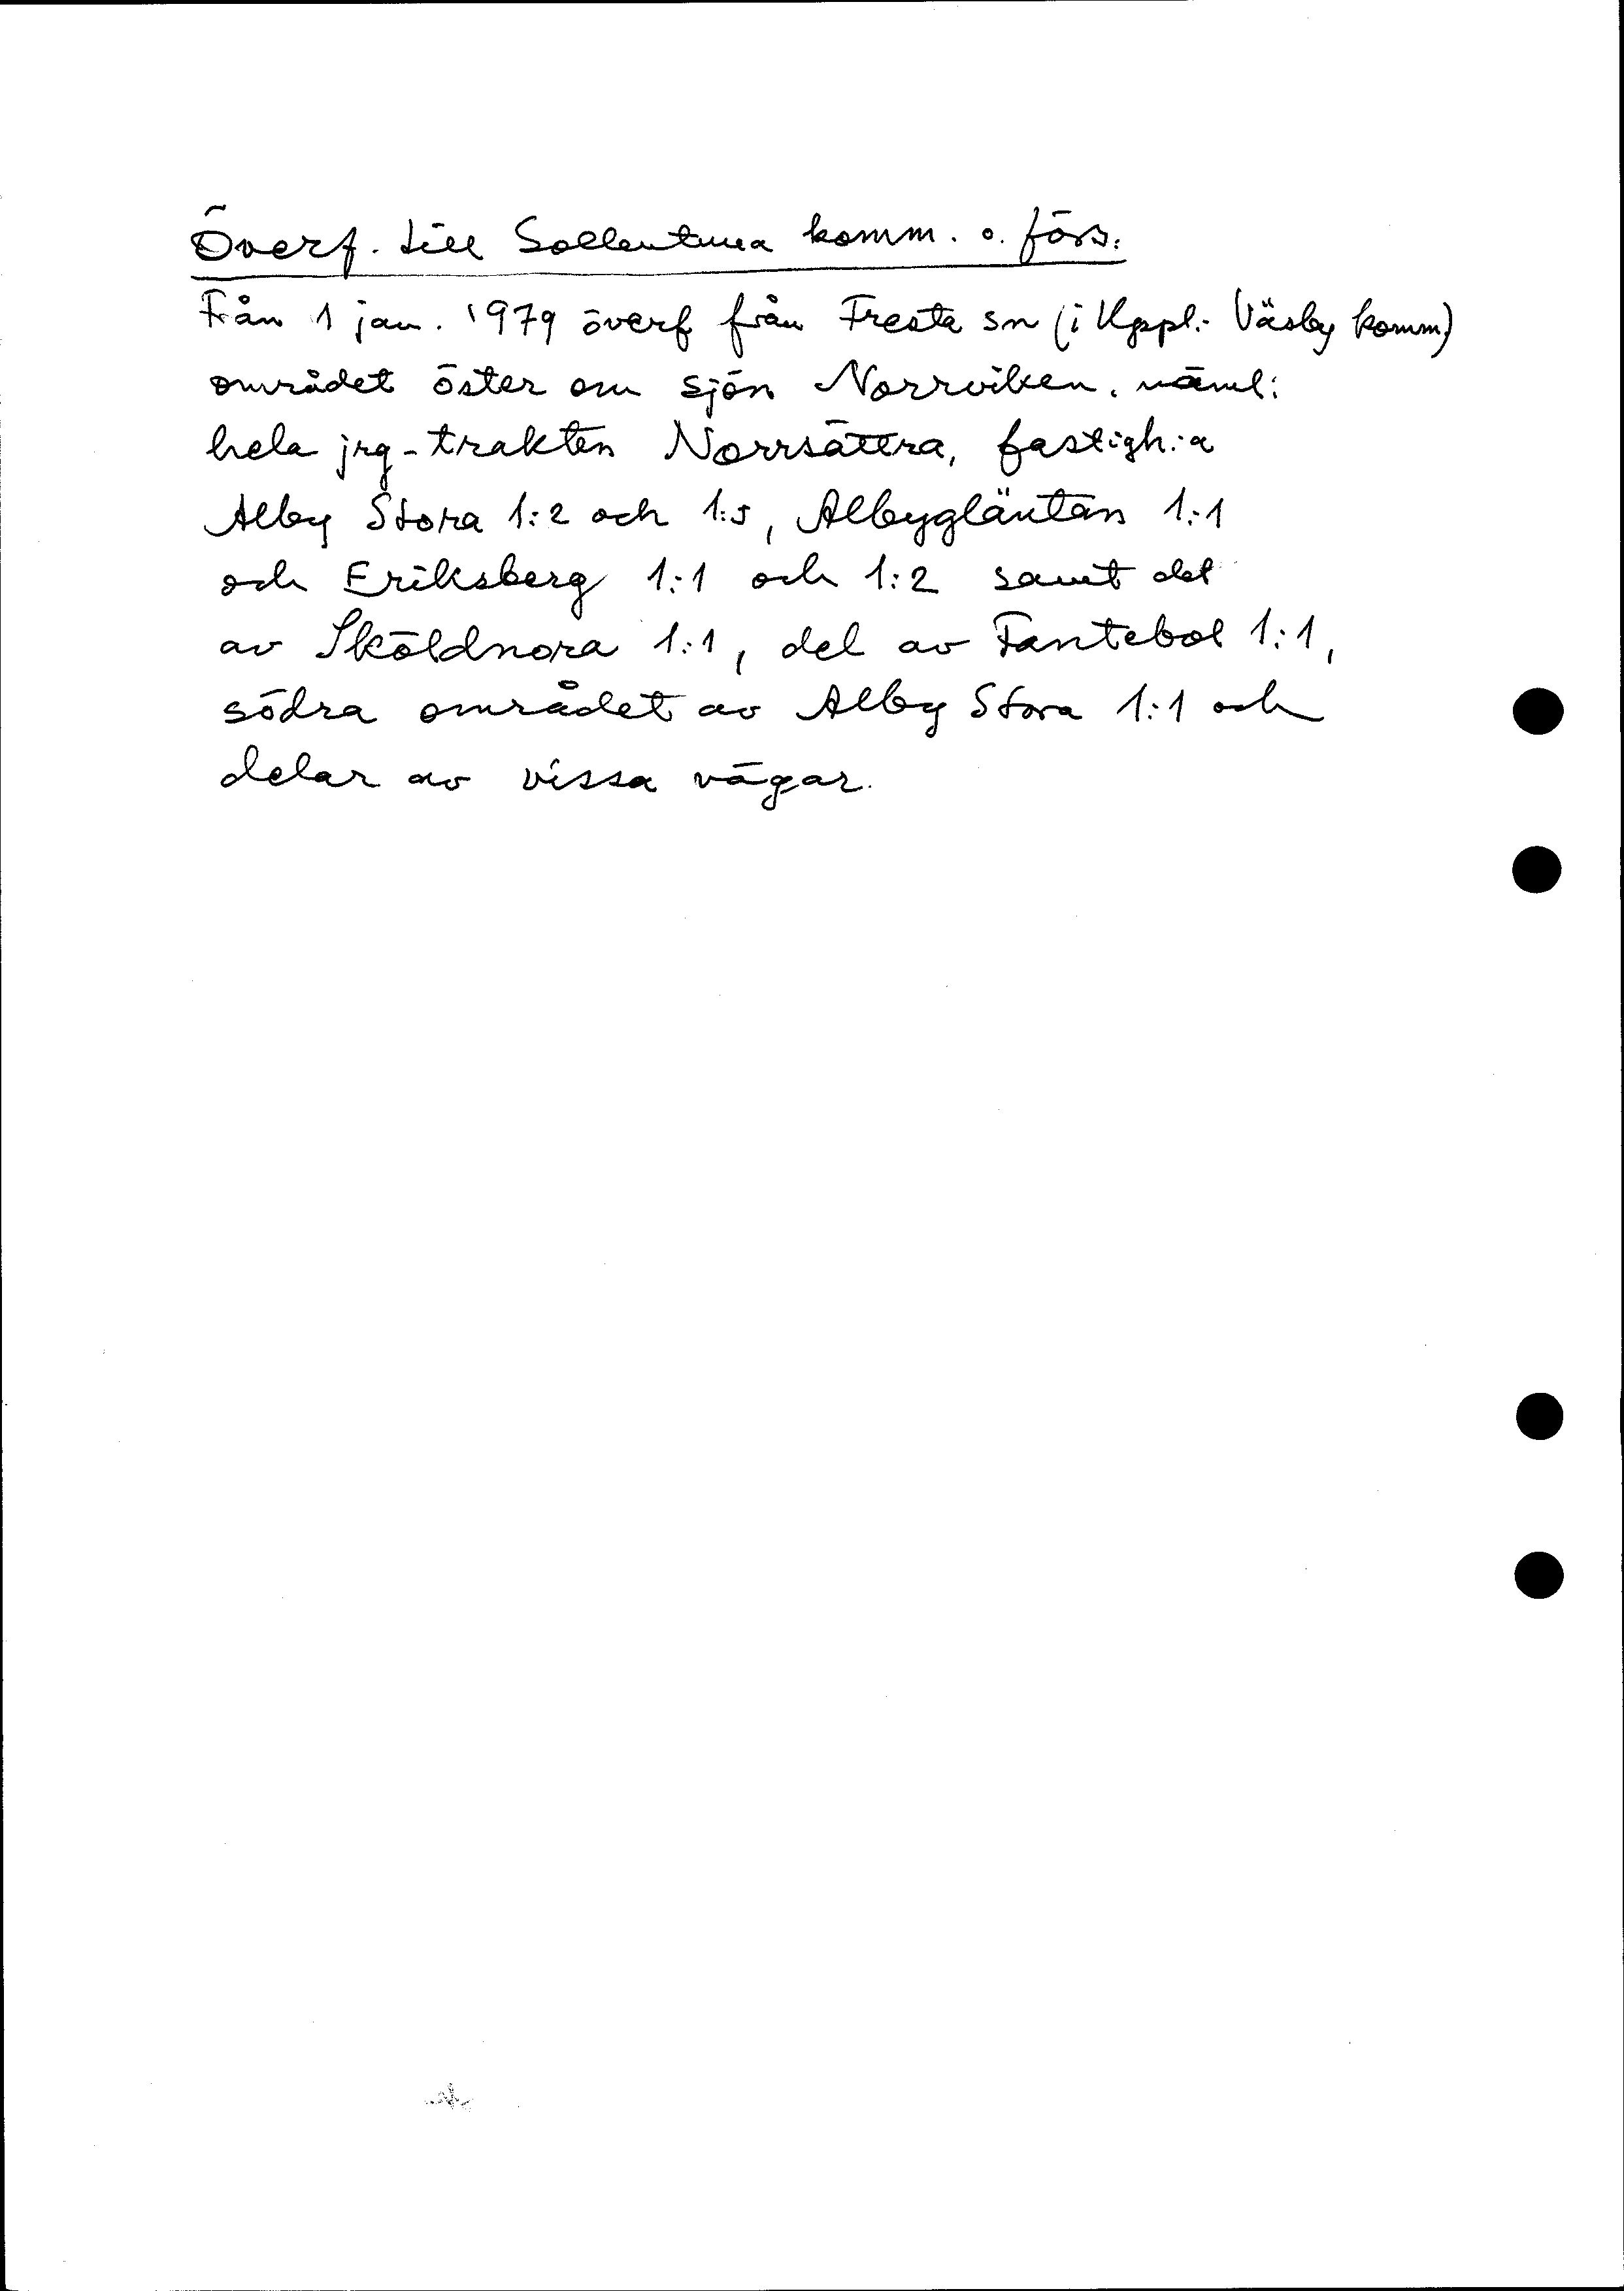 Överf. till Sollentuna komm. o. förs:
Från 1 jan. 1979 överf från Fresta sn (i Uppl:- Väsby komm)
området öster om sjön Norrviken, näml:
hela jrg-trakten Norrsättra, fastigh:a
Alby Stora 1:2 och 1:5, Albygläntan 1:1
och Eriksberg 1:1 och 1:2 samt del
av Sköldnora 1:1, del av Fantebol 1:1,
södra området av Alby Stora 1:1 och
delar av vissa vägar.